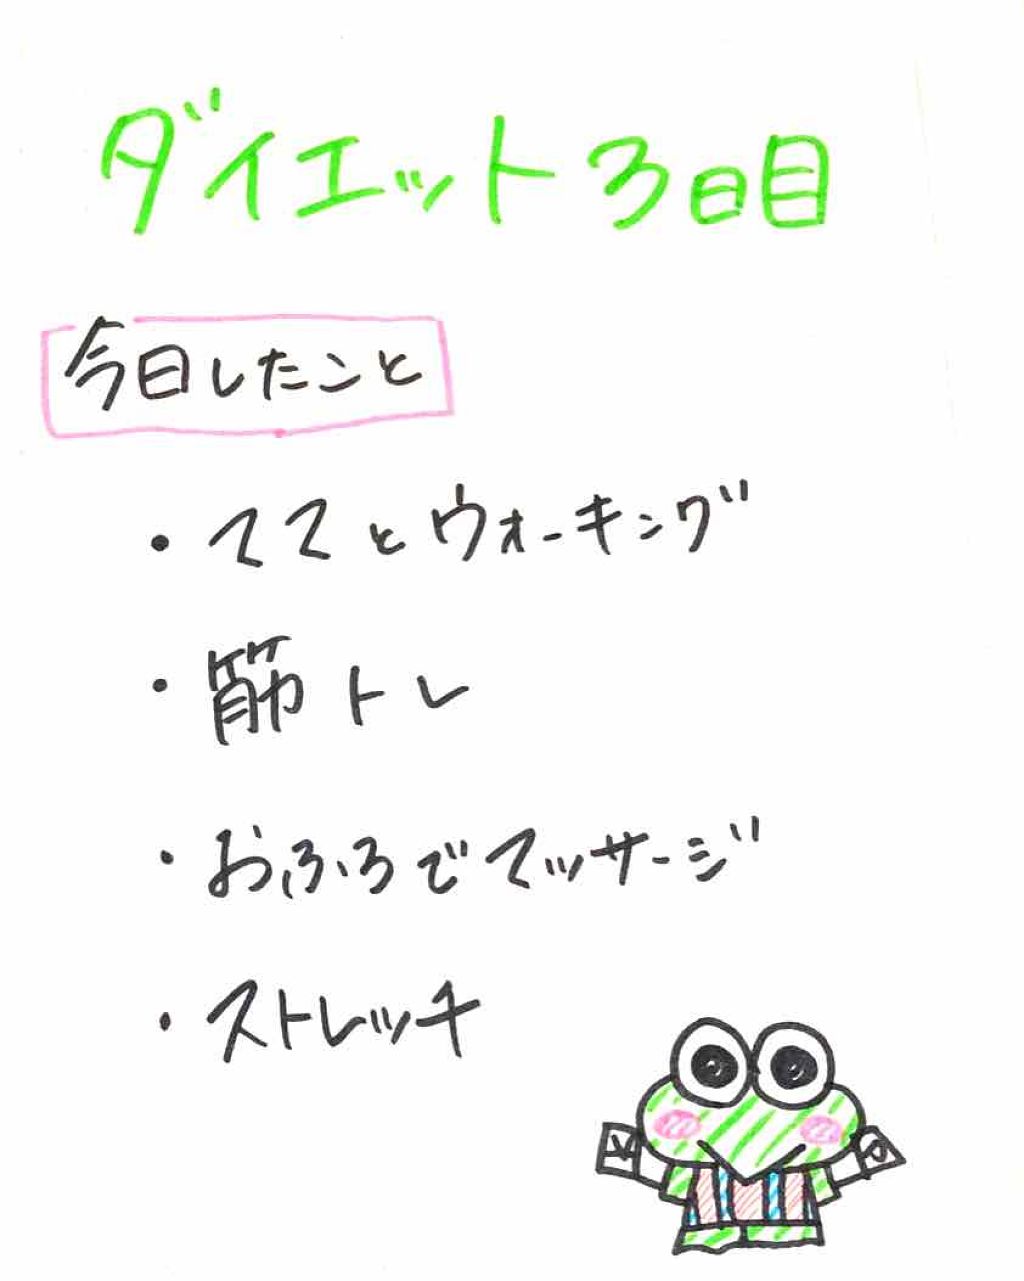 ダイエット3日目
今日したこと
・ママとウォーキング
・筋トレ
・おふろでマッサージ
・ストレッチ